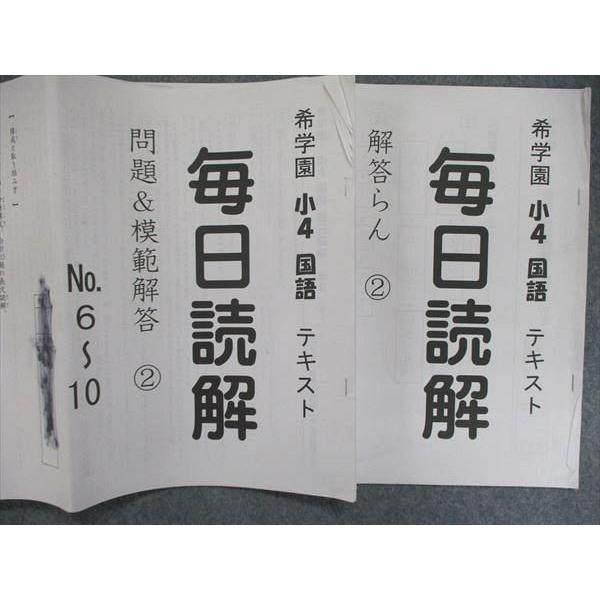 希学園 小4 国語 テキスト
毎日読解
解答らん ②
希学園 小4 国語 テキスト
毎日読解
問題&模範解答 ②
No.6~10